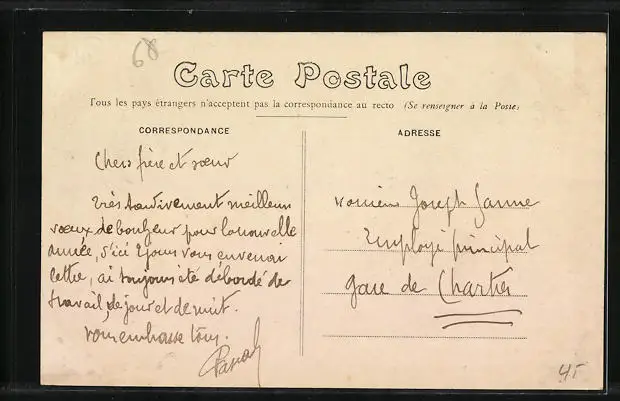 68
Carte Postale
Tous les pays étrangers n'acceptent pas la correspondance au recto (Se renseigner à la Poste)
CORRESPONDANCE
ADRESSE
Chers frère et sœur
très tardivement meilleurs
vœux de bonheur pour la nouvelle
année, d'ici 2 jours vous enverrai
lettre, ai toujours été débordé de
travail, de jour et de nuit.
vous embrasse tous.
Joseph
Employé principal
gare de Chartres
45